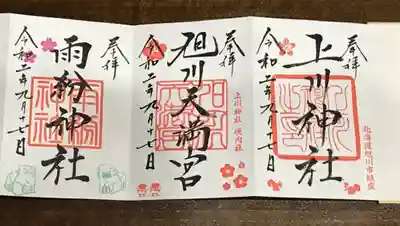 奉拝
上川神社
令和二年九月十七日
北海道旭川市鎮座
奉拝
上川神社 境内社
旭川天満宮
令和二年九月十七日
奉拝
雨紛神社
令和二年九月十七日